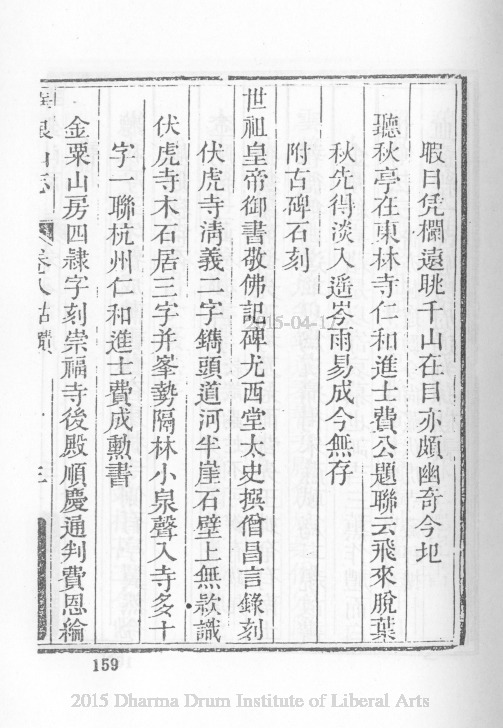 暇日凭欄遠眺千山在目亦頗幽奇今圮
聽秋亭在東林寺仁和進士費公題聯云飛來脫葉
秋先得淡入遥岑雨易成今無存
附古碑石刻
世祖皇帝御書敬佛記碑尤西堂太史撰僧昌言錄刻
伏虎寺淸義二字鐫頭道河半崖石壁上無欵識
伏虎寺木石居三字并峯勢隔林小泉聲入寺多十
字一聯杭州仁和進士費成勳書
金粟山房四隸字刻崇福寺後殿順慶通判費恩綸
山志 卷八
三
159
2015-04-17
2015 Dharma Drum Institute of Liberal Arts